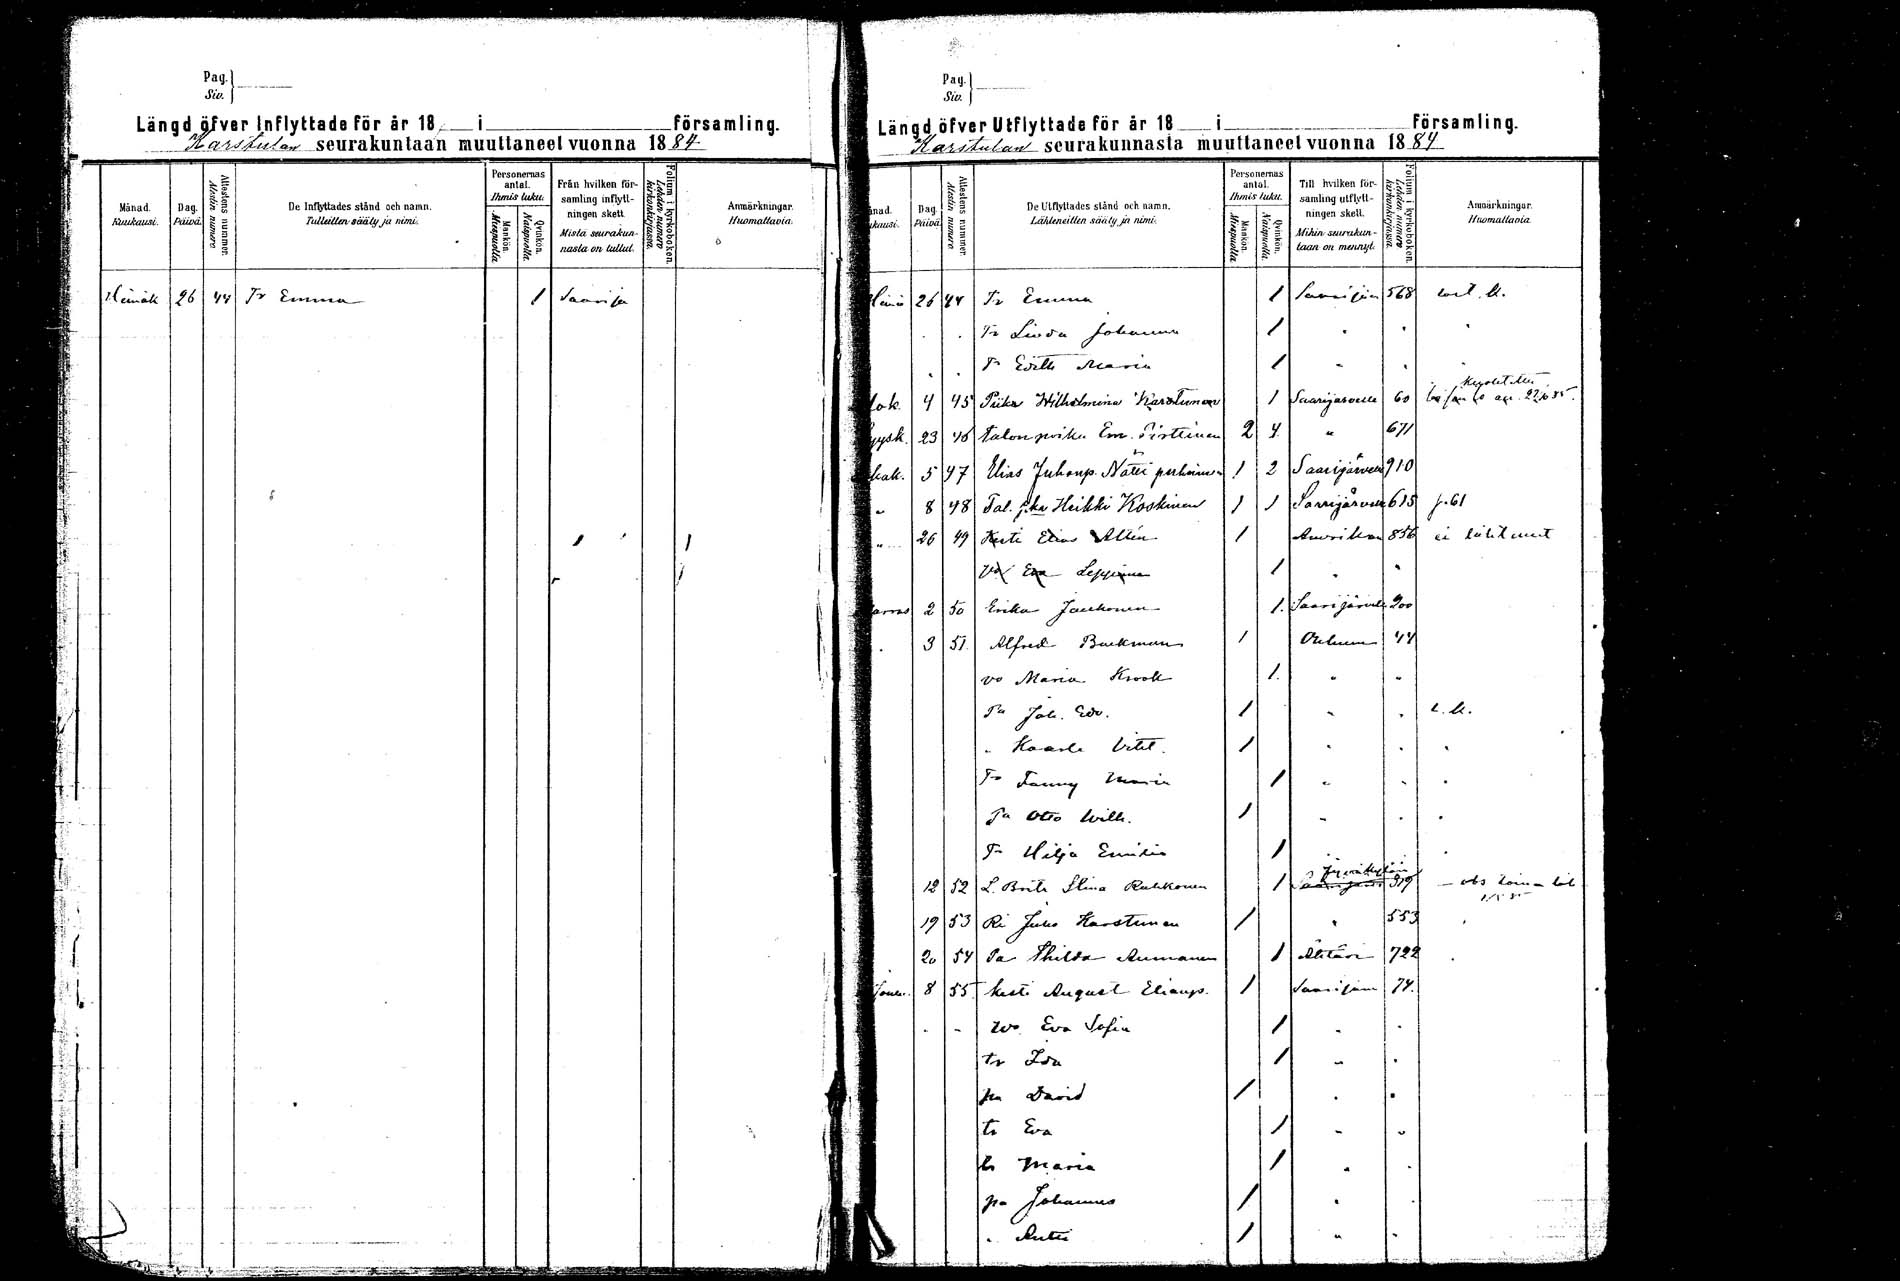 Pag.
Siv.
Längd öfver Inflyttade för år 18 i församling.
Karstulan seurakuntaan muuttaneet vuonna 1884
Månad.
Kuukausi.
Dag.
Päivä.
Attestens nummer.
Atestin numero
De Inflyttades stånd och namn.
Tulleitten sääty ja nimi.
Personernas antal.
Ihmis luku.
Mankön.
Miespuolta
Qvinkön.
Naispuolta.
Från hvilken för-
samling inflytt-
ningen skett.
Mistä seurakun-
nasta on tullut.
Folium i kyrkoboken.
Lehden numero
kirkonkirjassa.
Anmärkningar.
Huomattavia.
Heinäk 26 44 Tr Emma 1 Saarijä
Pag.
Siv.
Längd öfver Utflyttade för år 18 i församling.
Karstulan seurakunnasta muuttaneet vuonna 1884
Dag.
Päivä
Attestens nummer.
Atestin numero
De Utflyttades stånd och namn.
Lähteneitten sääty ja nimi.
Personernas antal.
Ihmis luku.
Mankön.
Miespuolta
Qvinkön.
Naispuolta.
Till hvilken för-
samling utflytt-
ningen skett.
Mihin seurakun-
taan on mennyt.
Folium i kyrkoboken.
Lehden numero
kirkonkirjassa.
Anmärkningar.
Huomattavia
Heinä 26 44 Tr Emma 1 Saarijär 568
Tr Linda Johanna 1
Tr Edith Maria 1
lok. 4 45 Piika Wilhelmina Karstunen 1 Saarijärvelle 60
Syysk. 23 46 Talon poika Em. Pirttinen 2 4 " 671
lokak. 5 47 Elias Juhonp. Nätti perheinen 1 2 Saarijärvelle 910
" 8 48 Tal. pka Heikki Koskinen 1 1 Saarijärvelle 615 p. 61
" 26 49 Kesti Elias Altén 1 Amerikan 856 ei lähtenut
vo Eva Leppinen 1
Marras 2 50 Erika Jauhonen 1 Saarijärvelle 200
3 51 Alfred Backman 1 Ouluun 44
vo Maria Krook 1
Pa Joh. Edv. 1
" Kaarle Viht. 1
Tr Fanny Maria 1
Pa Otto Wilh. 1
Tr Hilja Emilia 1
Jyväskylän
12 52 L. Brita Stina Rahkonen 1 Saarijärvi 319
19 53 Ri Juho Karstunen 1 " 553
20 54 Pa Thilda Aumanen 1 Ätsäri 722
Joulu. 8 55 Kesti August Elianp. 1 Saarijärv 74.
vo Eva Sofia 1
tr Ida 1
pa David 1
tr Eva 1
tr Maria 1
pa Johannes 1
" Antti 1